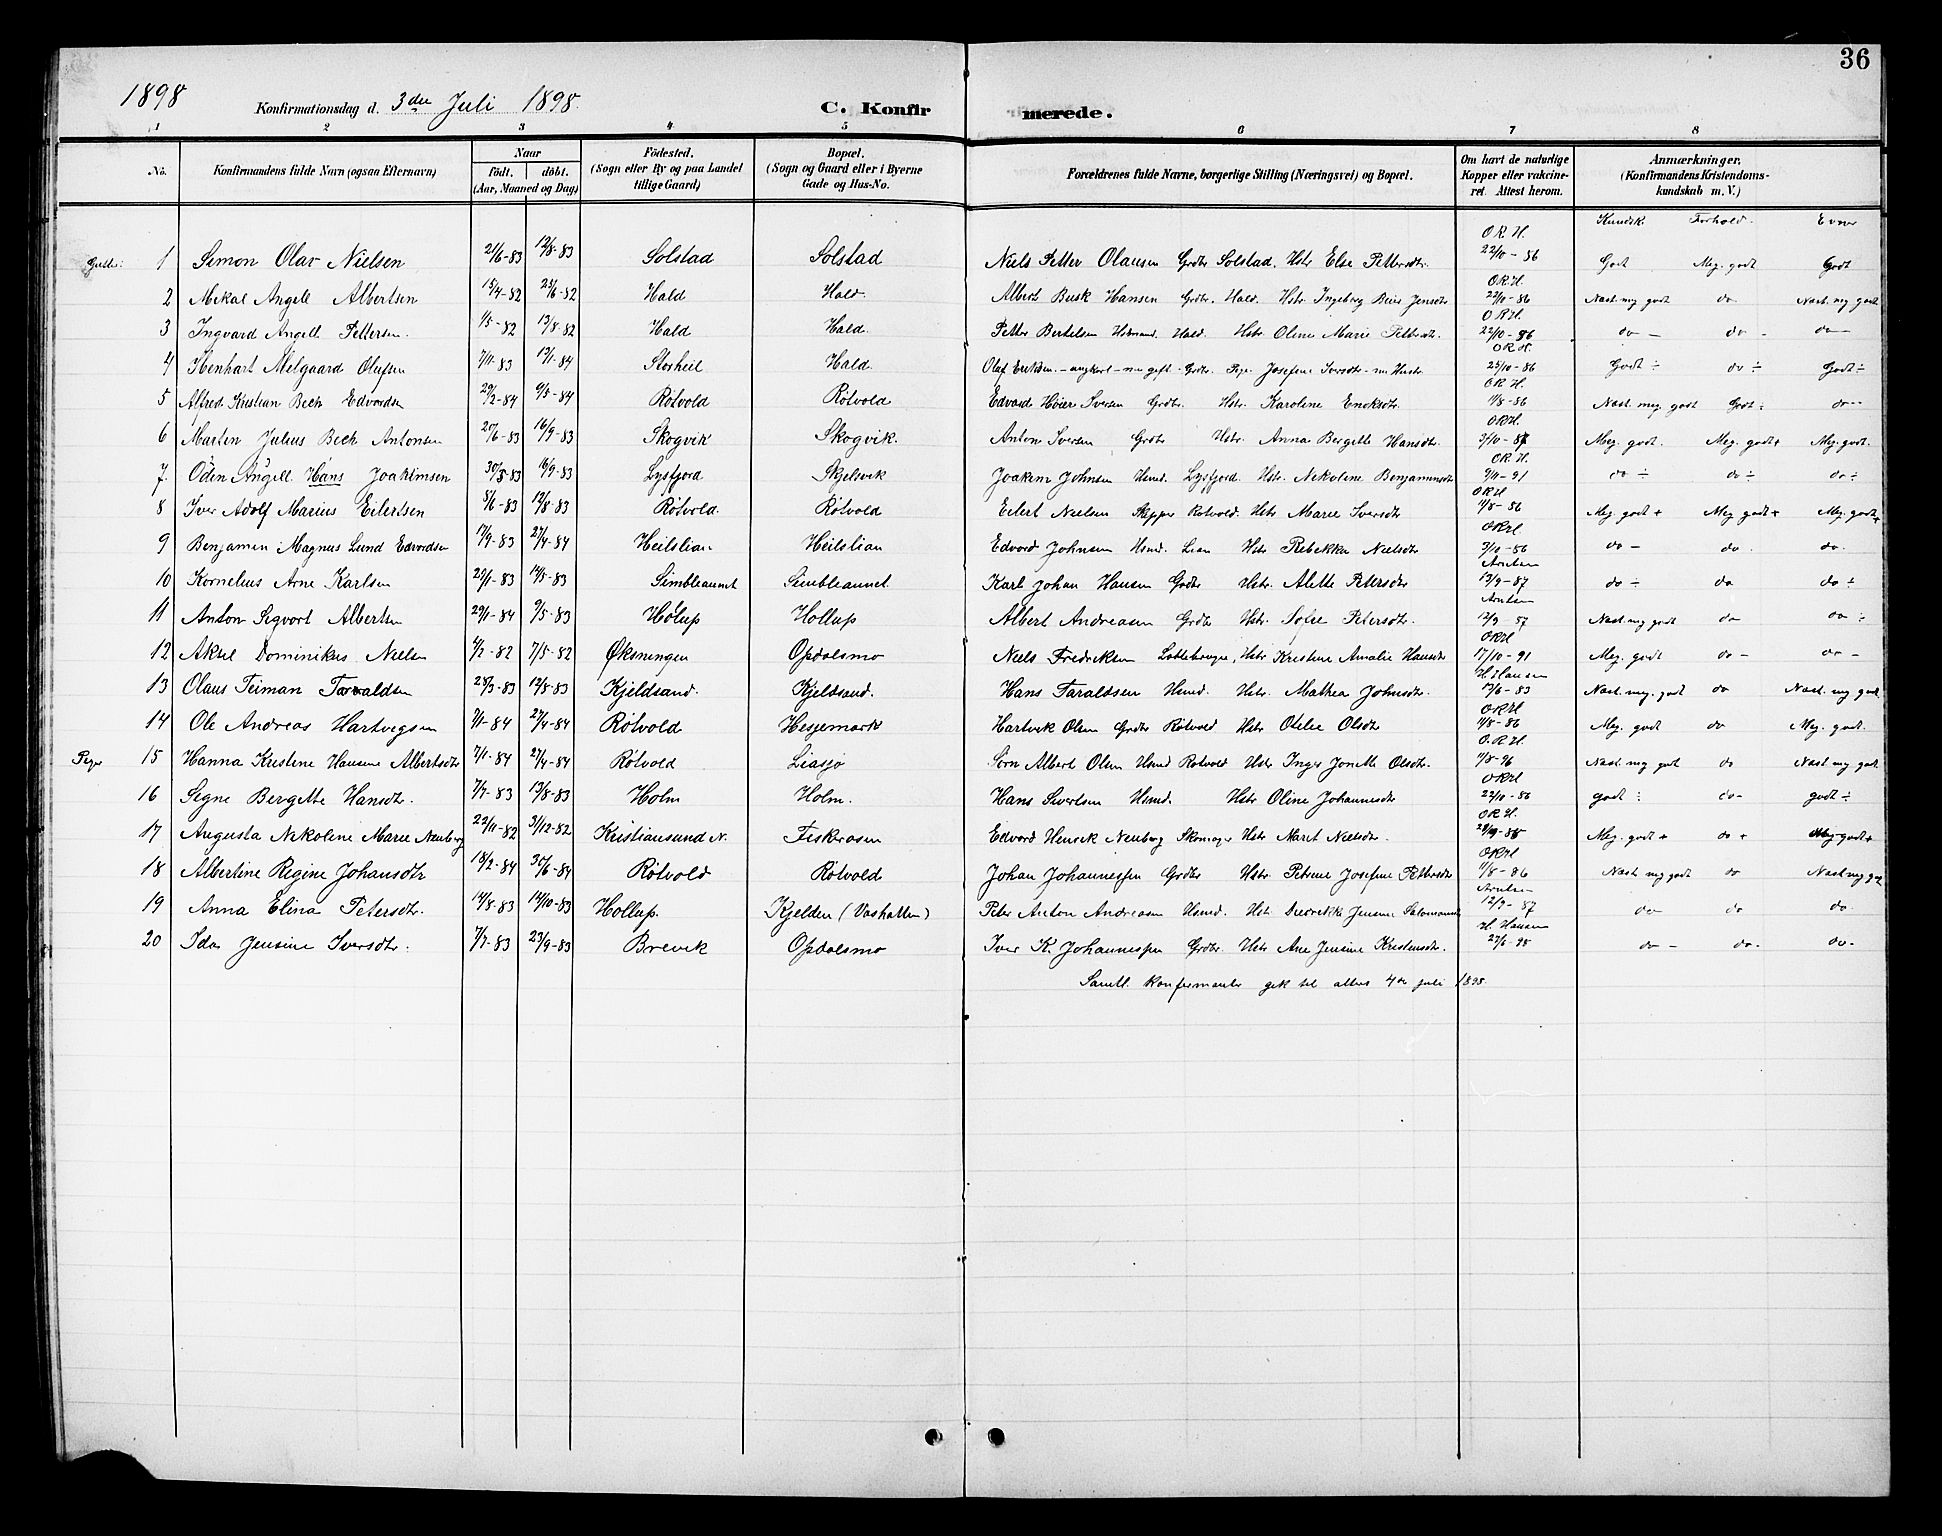 36
1898 Konfirmationsdag d. 3die Juli 1898. C. Konfirmerede.
1 2 3 4 5 6 7 8
No. Konfirmandens fulde Navn (ogsaa Efternavn) Naar født. døbt. (Aar, Maaned og Dag) Fødested. (Sogn eller By og paa Landet tillige Gaard) Bopæl. (Sogn og Gaard eller i Byerne Gade og Hus-No. Forældrenes fulde Navne, borgerlige Stilling (Næringsvei) og Bopæl. Om havt de naturlige Kopper eller vakcineret. Attest herom. Anmærkninger, (Konfirmandens Kristendomskundskab m. V.)
Kundsk. Forhold. Evner
1 Simon Olav Nielsen 21/6-83 12/8-83 Solstad Solstad Niels Petter Olausen Grdbr Solstad. Hstr Else Pettersdtr. O R H. 22/10-86 Godt Meg. godt Godt
2 Mikal Angell Albertsen 15/4-82 25/6-82 Hald Hald. Albert Busk Hansen Grdbr. Hald. Hstr Ingeborg Jensdtr O R H. 22/10-86 Nast. meg godt do Nast. meg godt
3 Ingvard Angell Pettersen. 1/5-82 13/8-82 Hald Hald. Petter Bertelsen Husmand. Hald. Hstr Oline Marie Pettersdtr. O R H. 22/10-86 do - do - do -
4 Henhart Melgaard Olufsen 7/11-83 13/1-84 Storheil Hald. Olaf Eriksen - ungkarl - nu gift - Grdbr. Pige Josefine Iversdtr - nu Hustr O R H. 25/10-86 Godt ÷ do ÷ Godt ÷
5 Alfred Kristian Bech Edvardsen 29/2-84 9/5-84 Rötvold Rötvold Edvard Høier Iversen Grdbr. Hstr. Karoline Eriksdtr. O R H. 11/8-86 Nast. meg. godt Godt ÷ do -
6 Martin Julius Bech Antonsen 25/6-83 16/9-83 Skogvik Skogvik. Anton Iversen Grdbr Hstr. Anna Bergette Hansdtr. O R H. 3/10-87 Meg. godt. Meg. godt + Meg. godt.
7. Oden Angell Hans Joakimsen 30/8-83 16/9-83 Lysfjord Skjelsvik Joakim Johnsen Husmd. Lysfjord. Hstr. Nikoline Benjaminsdtr O R. H. 9/11-91 do ÷ do ÷ do ÷
8 Iver Adolf Marius Eilertsen 5/6-83 12/8-83 Rötvold. Rötvold Eilert Nielsen Skipper Rötvold. Hstr Marie Iversdtr O R H 11/8-86 Meg. godt + Meg godt + Meg. godt +
9 Benjamin Magnus Lund Edvardsen 17/9-83 27/4-84 Heilslian Heilslian Edvard Johnsen Husmd. Lian Hstr Rebekka Nielsdtr O R H. 3/10-86 do - do. do.
10 Kornelius Arne Karlsen 29/1-83 14/5-83 Simbleaunet Simbleaunet Karl Johan Hansen Grdbr Hstr. Alette Petersdtr Arntsen 13/9-87 do ÷ do do ÷
11 Anton Sigvort Albertsen 29/1-84 9/5-83 Hollup Hollup Albert Andreasen Grdbr Hstr. Sofie Petersdtr. Arntsen 12/9-87 Nast. meg godt do do ÷
12 Aksel Dominikus Nielsen 4/2-82 7/5-82 Øksningen Opdalsmo Niels Fredriksen Hstr Kristine Amalie Hansdtr O R H 17/10-91 Meg. godt do - do -
13 Olaus Teiman Taraldsen 25/3-83 12/8-83 Kjeldsand. Kjeldsand. Hans Taraldsen Husmd. Hstr. Mathea Johnsdtr. H. Hansen 17/6-83 Nast. meg. godt do Nast. meg godt
14 Ole Andreas Hartvegsen 7/1-84 27/4-84 Rötvold Hesjemark Hartvik Olsen Grdbr Rötvold Hstr Otelie Olsdtr O R H 11/8-86 Meg. godt do Meg. godt.
Piger 15 Hanna Kristine Hansine Albertsdtr 7/11-84 27/4-84 Rötvold Liasjö Sörn Albert Olsen Husmd Rötvold Hstr Inger Jonette Olsdtr. O. R H. 11/8-96 Nast. meg godt do Nast. meg godt
16 Signe Bergette Hansdtr. 7/7-83 13/8-83 Holm Holm. Hans Sivertsen Husmd. Hstr Oline Johannesdtr O R H 22/10-86 godt ÷ do - godt ÷
17 Augusta Nikoline Marie Neuberg 22/11-82 31/12-82 Kristiansund N. Fiskerosen Edvard Henrik Neuberg Skomager Hstr Maret Nielsdtr. O R H. Meg. godt + do + Meg godt +
18 Albertine Regine Johansdtr 18/2-84 30/6-84 Rötvold Rötvold Johan Johannessen Grdbr Hstr Petrine Josefine Pettersdtr O R H 11/8-86 Nast. meg godt do Nast. meg godt
19 Anna Elina Petersdtr. 14/8-83 14/10-83 Hollup. Kjelden (Vashatten) Peter Anton Andreasen Husmd. Hstr Jensine Salomonsdtr Arntsen 12/9-87 do do do.
20 Ida Jensine Iversdtr. 7/7-83 23/9-83 Brevik Opdalsmo Iver K. Johannessen Grdbr. Hstr Ane Jensine Kristensdtr. H. Hansen 27/6-95 do - do - do -
Samtl. konfirmanter gik til alters 4de juli 1898.